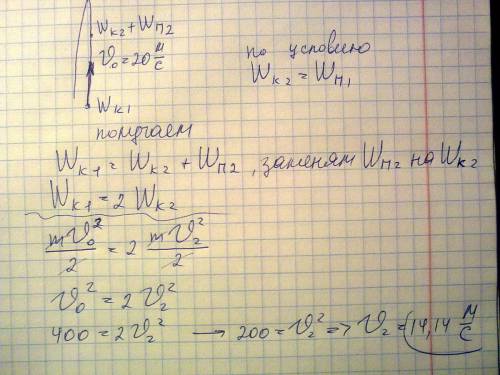 Wк2 + Wп2
V₀ = 20 м/с
по условию
Wк2 = Wп1
Wк1
получаем
Wк1 = Wк2 + Wп2, заменям Wп2 на Wк2
Wк1 = 2 Wк2
mV₀²/2 = 2 mV₂²/2
V₀² = 2 V₂²
400 = 2V₂² → 200 = V₂² => V₂ = 14,14 м/с